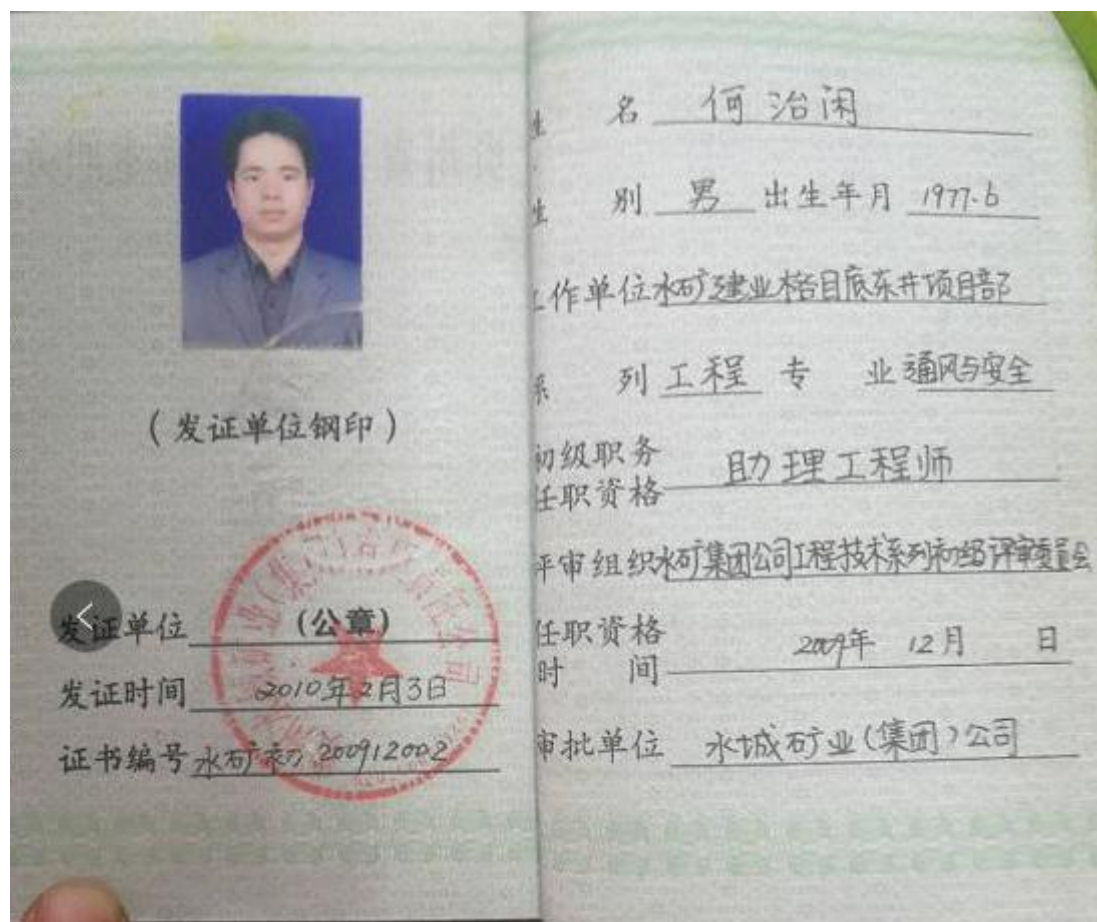 (发证单位钢印)
发证单位 (公章)
发证时间 2010年2月3日
证书编号 水矿初 200912002
姓 名 何治闲
性 别 男 出生年月 1977.6
工作单位 水矿建业格目底东井项目部
系 列 工程 专 业 通风与安全
初级职务
任职资格 助理工程师
评审组织 水矿集团公司工程技术系列初级评审委员会
任职资格
时 间 2009年 12月 日
审批单位 水城矿业(集团)公司